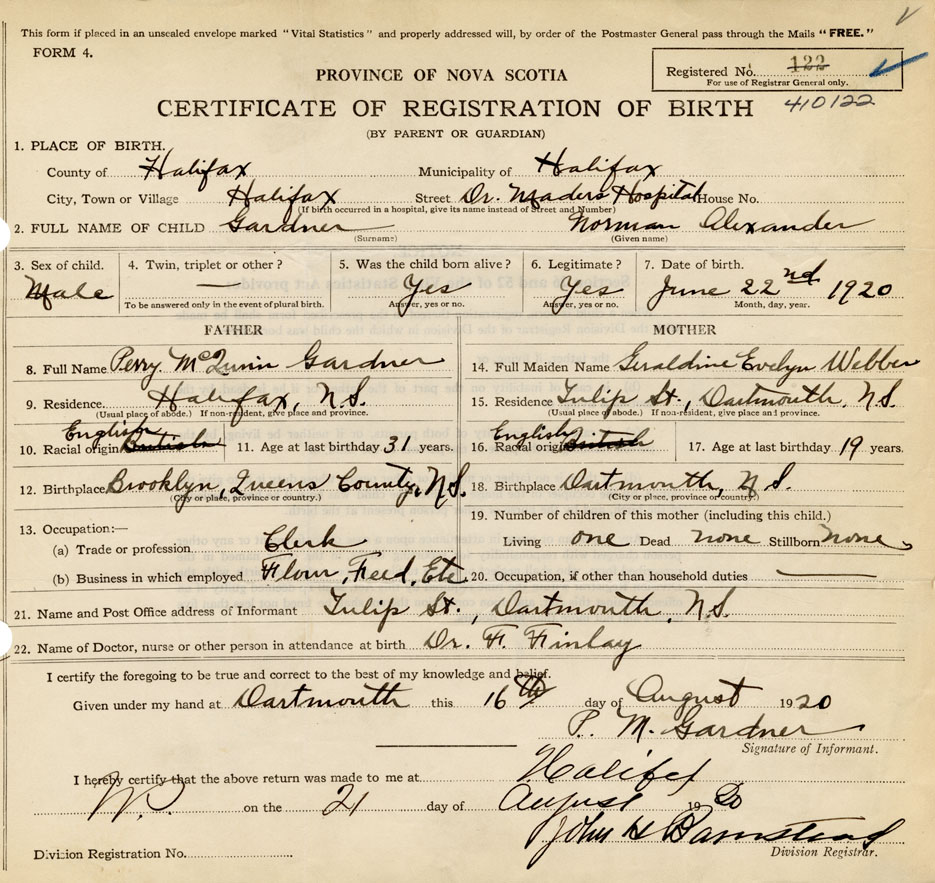 This form if placed in an unsealed envelope marked "Vital Statistics" and properly addressed will, by order of the Postmaster General pass through the Mails "FREE."
FORM 4.
PROVINCE OF NOVA SCOTIA
Registered No. 122
For use of Registrar General only.
CERTIFICATE OF REGISTRATION OF BIRTH 410122
(BY PARENT OR GUARDIAN)
1. PLACE OF BIRTH.
County of Halifax Municipality of Halifax
City, Town or Village Halifax Street Dr. Maders Hospital House No.
(If birth occurred in a hospital, give its name instead of Street and Number)
2. FULL NAME OF CHILD Gardner Norman Alexander
(Surname) (Given name)
3. Sex of child. 4. Twin, triplet or other? 5. Was the child born alive? 6. Legitimate? 7. Date of birth.
Male — Yes Yes June 22nd 1920
To be answered only in the event of plural birth. Answer, yes or no. Answer, yes or no. Month, day, year.
FATHER MOTHER
8. Full Name Perry McQuinn Gardner 14. Full Maiden Name Geraldine Evelyn Webber
9. Residence Halifax, N.S. 15. Residence Tulip St., Dartmouth, N.S.
(Usual place of abode.) If non-resident, give place and province. (Usual place of abode.) If non-resident, give place and province.
English English
10. Racial origin British 11. Age at last birthday 31 years. 16. Racial origin British 17. Age at last birthday 19 years.
12. Birthplace Brooklyn, Queens County, N.S. 18. Birthplace Dartmouth, N.S.
(City or place, province or country.) (City or place, province or country.)
13. Occupation:— 19. Number of children of this mother (including this child.)
(a) Trade or profession Clerk Living one Dead none Stillborn none
(b) Business in which employed Flour, Feed, Etc. 20. Occupation, if other than household duties —
21. Name and Post Office address of Informant Tulip St., Dartmouth, N.S.
22. Name of Doctor, nurse or other person in attendance at birth Dr. F. Finlay
I certify the foregoing to be true and correct to the best of my knowledge and belief.
Given under my hand at Dartmouth this 16th day of August 1920
P. M. Gardner
Signature of Informant.
I hereby certify that the above return was made to me at Halifax
on the 21 day of August 1920
John H Barnstead
Division Registrar.
Division Registration No.